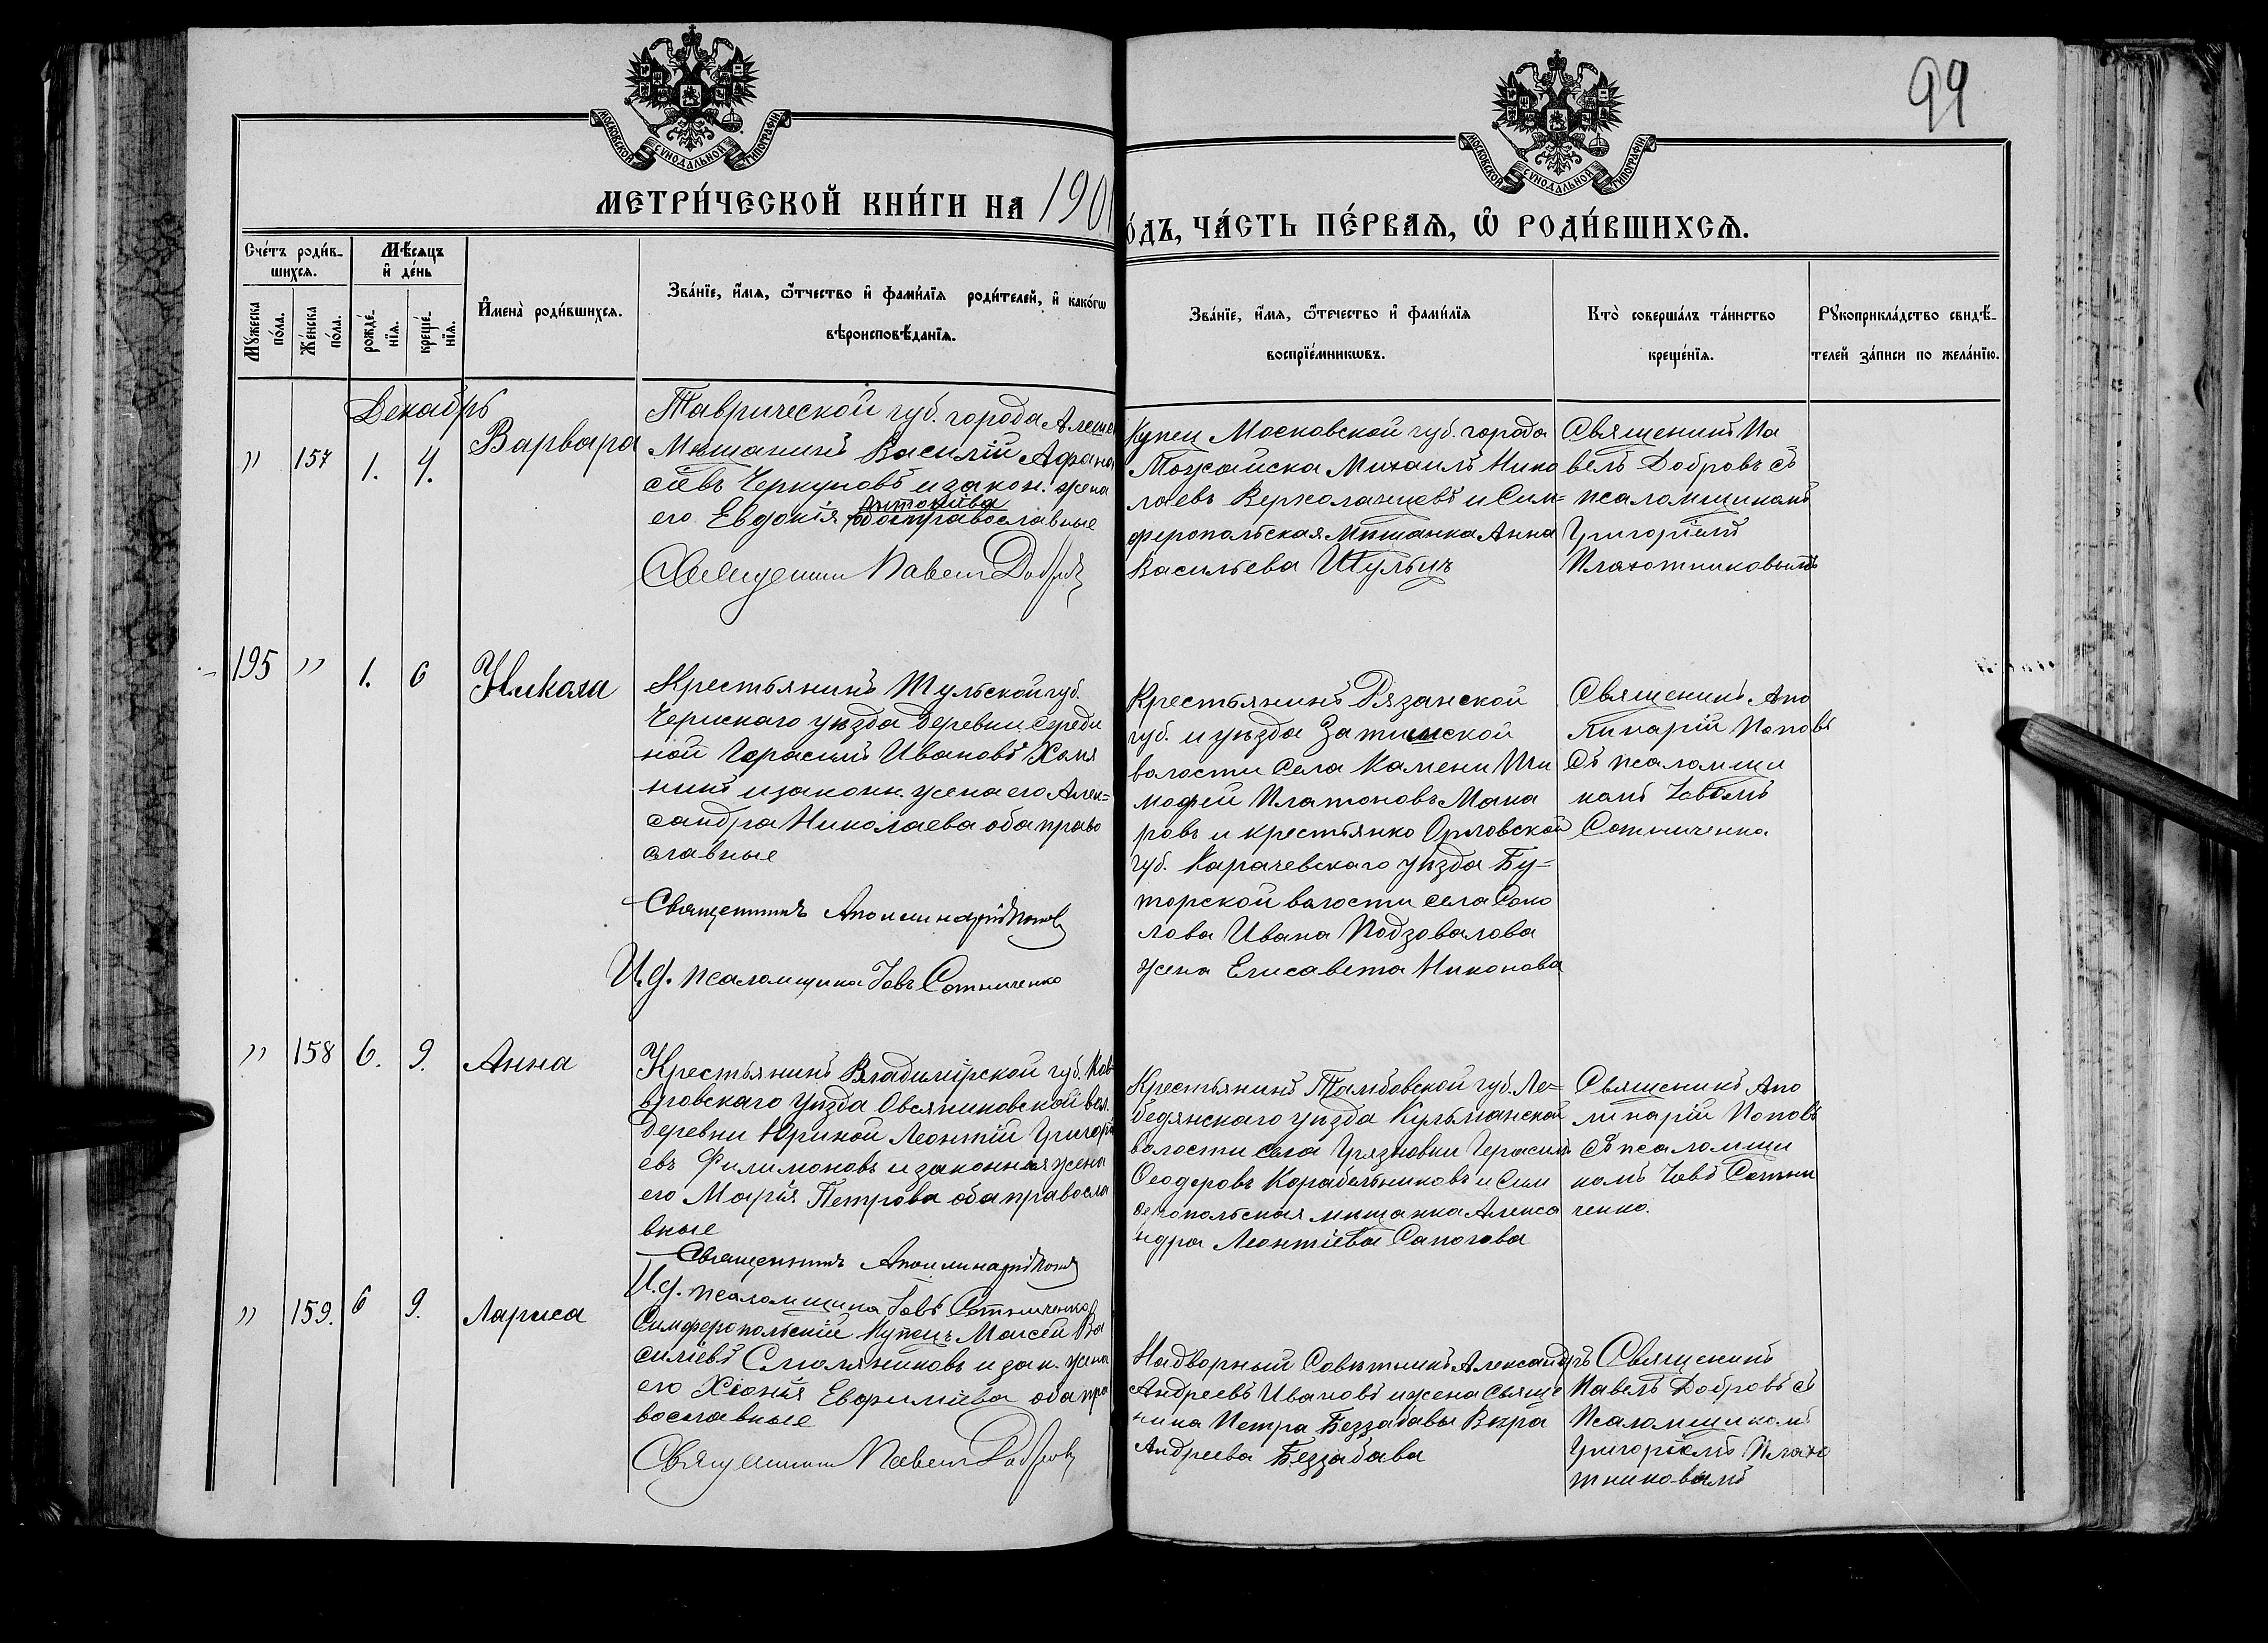 99
МОСКОВСКОЙ СѴНОДАЛЬНОЙ ТИПОГРАФІИ
МОСКОВСКОЙ СѴНОДАЛЬНОЙ ТИПОГРАФІИ
МЕТРИ́ЧЕСКОЙ КНИ́ГИ НА 190
О́ДЪ, ЧА́СТЬ ПЕ́РВАѦ, Ѡ҆ РОДИ́ВШИХСѦ.
Сче́тъ роди́в-
шихсѧ.
Мꙋжеска по́ла.
Же́нска по́ла.
Мѣ́сѧцъ
и҆ де́нь
рожде́-
нїѧ.
креще́-
нїѧ.
И҆мена̀ роди́вшихсѧ.
Зва́нїе, и҆́мѧ, ѻ҆́тчество и҆ фами́лїѧ роди́телей, и҆ како́гѡ
вѣроисповѣ́данїѧ.
Зва́нїе, и҆́мѧ, ѻ҆́течество и҆ фами́лїѧ
воспрїе́мникѡвъ.
Кто̀ соверша́лъ та́инство
креще́нїѧ.
Рꙋкоприкла́дство свидѣ́-
телей за́писи по жела́нїю.
Декабрь
" 157 1. 4. Варвара
Таврической губ. города Алеше
Мѣщанинъ Василій Афана
сіевъ Черкуновъ и закон. жена
его Евдокія православные
Священникъ Павелъ Добровъ
Купец Московской губ. города
Можайска Михаилъ Нико
лаевъ Верхоланцевъ и Сим=
феропольская Мѣщанка Анна
Васильева Шульцъ
Священикъ Па
велъ Добровъ съ
псаломщикомъ
Григоріемъ
Плахотниковымъ
195 " 1. 6 Никола
Крестьянинъ Тульской губ.
Чернскаго уѣзда деревни Среди
ной Герасимъ Ивановъ Хомя
кинъ и законн. жена его Алек=
сандра Николаева оба право
славные
Священникъ Аполинарій Поповъ
И. д. псаломщика Іовъ Сотниченко
Крестьянинъ Рязанской
губ. и уѣзда Затишской
волости Села Камени Ти
мофей Платоновъ Мака
ровъ и крестьянко Орловской
губ. Карачевскаго уѣзда Бу=
торской волости села Соко
лова Ивана Подзовалова
жена Елисавета Никонова
Священикъ Апо
линарій Поповъ
Съ псаломщи
комъ Іовомъ
Сотниченко
" 158 6. 9. Анна
Крестьянинъ Владимірской губ. Ков-
вровскаго уѣзда Овсяниковской вол.
деревни Юриной Леонтій Григорі
евъ Филимоновъ и законная жена
его Марія Петрова оба правосла
вные
Священникъ Аполинарій Поповъ
И. д. псаломщика Іовъ Сотниченко
Крестьянинъ Тамбовской губ. Ле=
бедянскаго уѣзда Кузьминской
волости села Грязновки Герасимъ
Ѳеодоровъ Корабельниковъ и Сим
феропольская мѣщанка Алекса
ндра Леонтіева Сапогова
Священикъ Апо
линарій Поповъ
съ псаломщи
комъ Іовъ Сотни
ченко.
" 159. 6 9. Лариса
Симферопольскій Купецъ Моисей Ва
силіевъ Смоляниковъ и зак. жена
его Хіонія Евфиміева оба пра
вославные
Священникъ Павелъ Добровъ
Надворный Совѣтникъ Александръ
Андреевъ Ивановъ и жена Свяще
ника Петра Беззабавы Вѣра
Андреева Беззабава
Священикъ
Павелъ Добровъ съ
Псаломщикомъ
Григоріемъ Плахо
тниковымъ